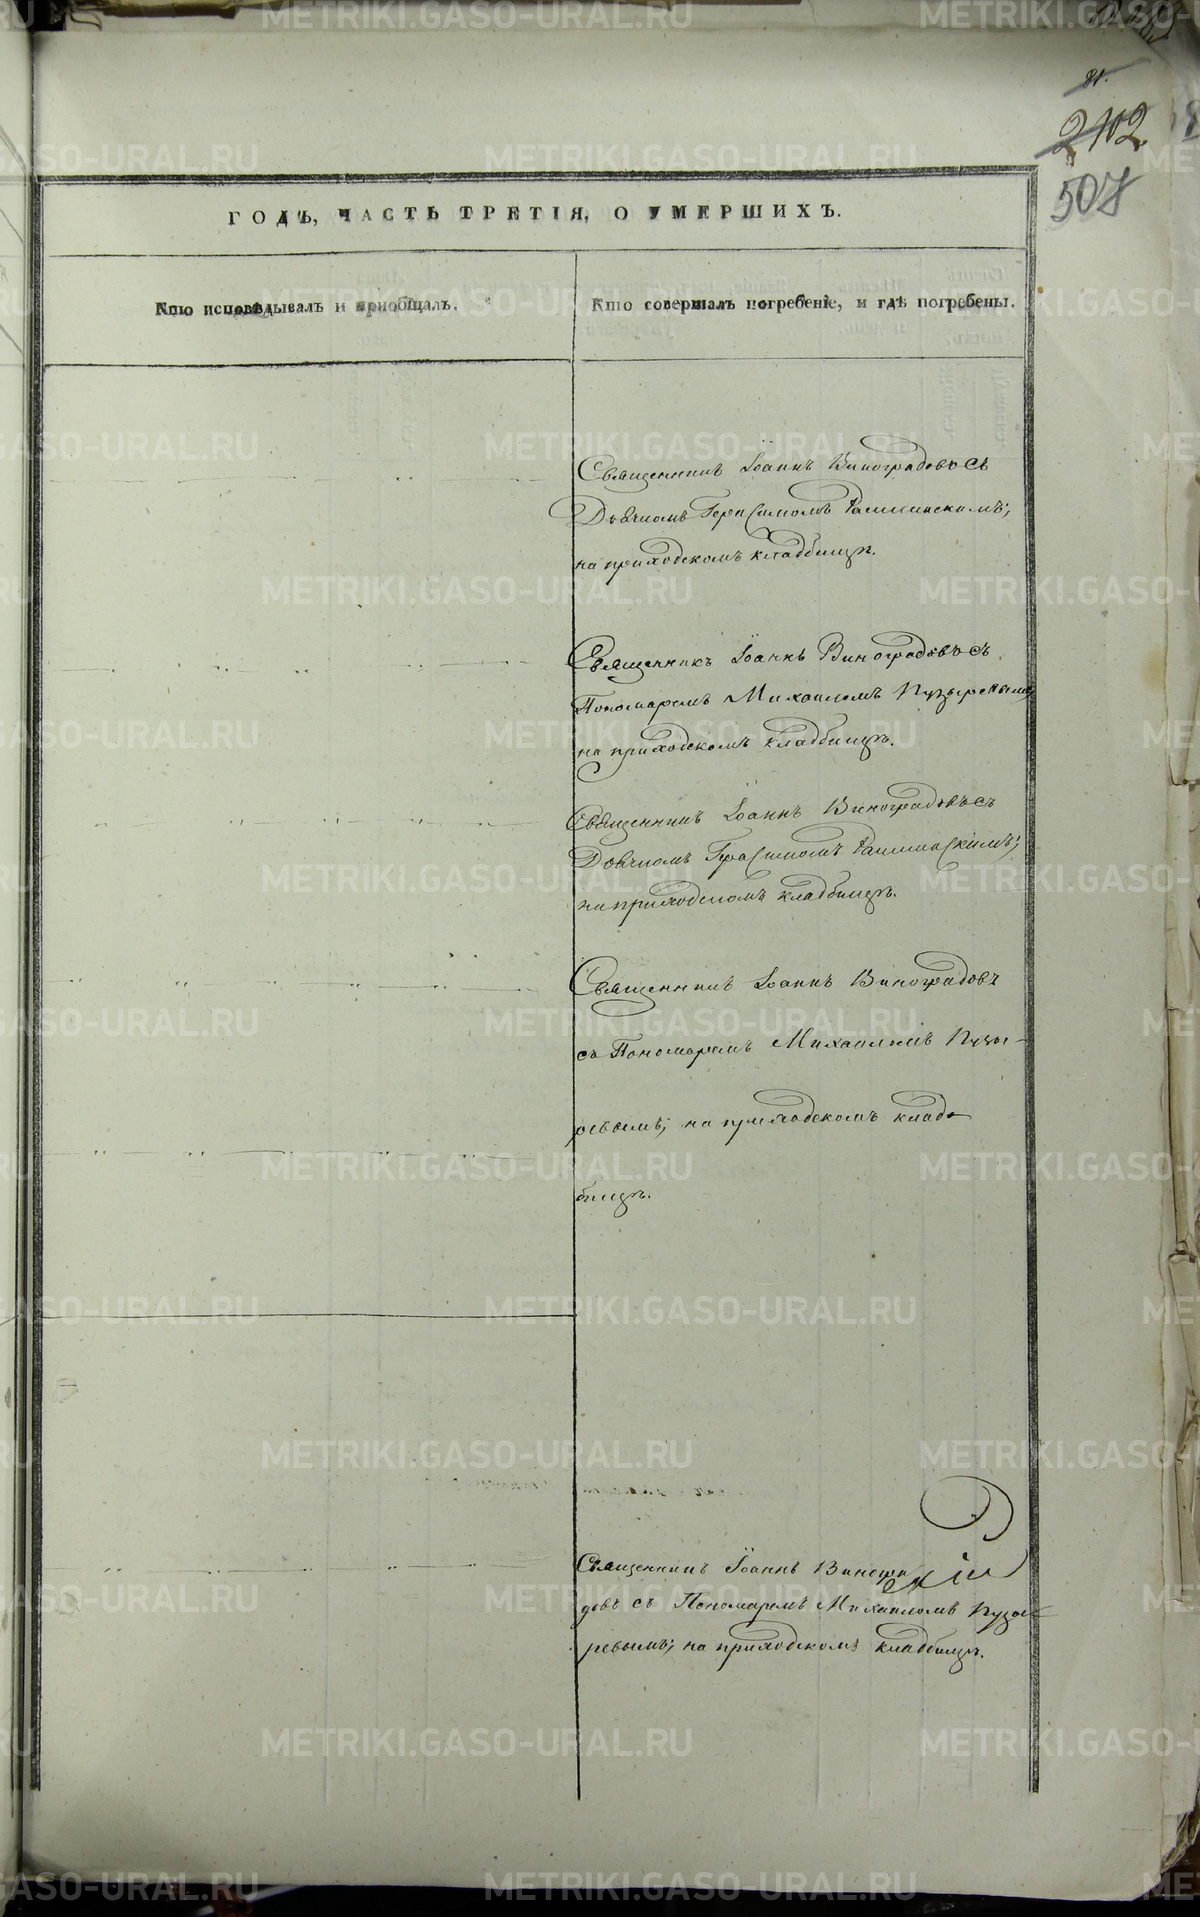 81.
2102
507
ГОДЪ, ЧАСТЬ ТРЕТІЯ, О УМЕРШИХЪ.
Кто исповѣдывалъ и пріобщалъ.
Кто совершалъ погребеніе, и гдѣ погребены.
Священникъ Іоаннъ Виноградовъ съ
Дьячкомъ Герасимомъ
на приходскомъ кладбищѣ.
Священникъ Іоаннъ Виноградовъ съ
Пономаремъ Михаиломъ Пузыревымъ
на приходскомъ кладбищѣ.
Священникъ Іоаннъ Виноградовъ съ
Дьячкомъ Герасимомъ
на приходскомъ кладбищѣ.
Священникъ Іоаннъ Виноградовъ
съ Пономаремъ Михаиломъ Пузы-
ревымъ; на приходскомъ клад-
бищѣ.
Священникъ Іоаннъ Виногра
довъ съ Пономаремъ Михаиломъ Пузы-
ревымъ; на приходскомъ кладбищѣ.
METRIKI.GASO-URAL.RU